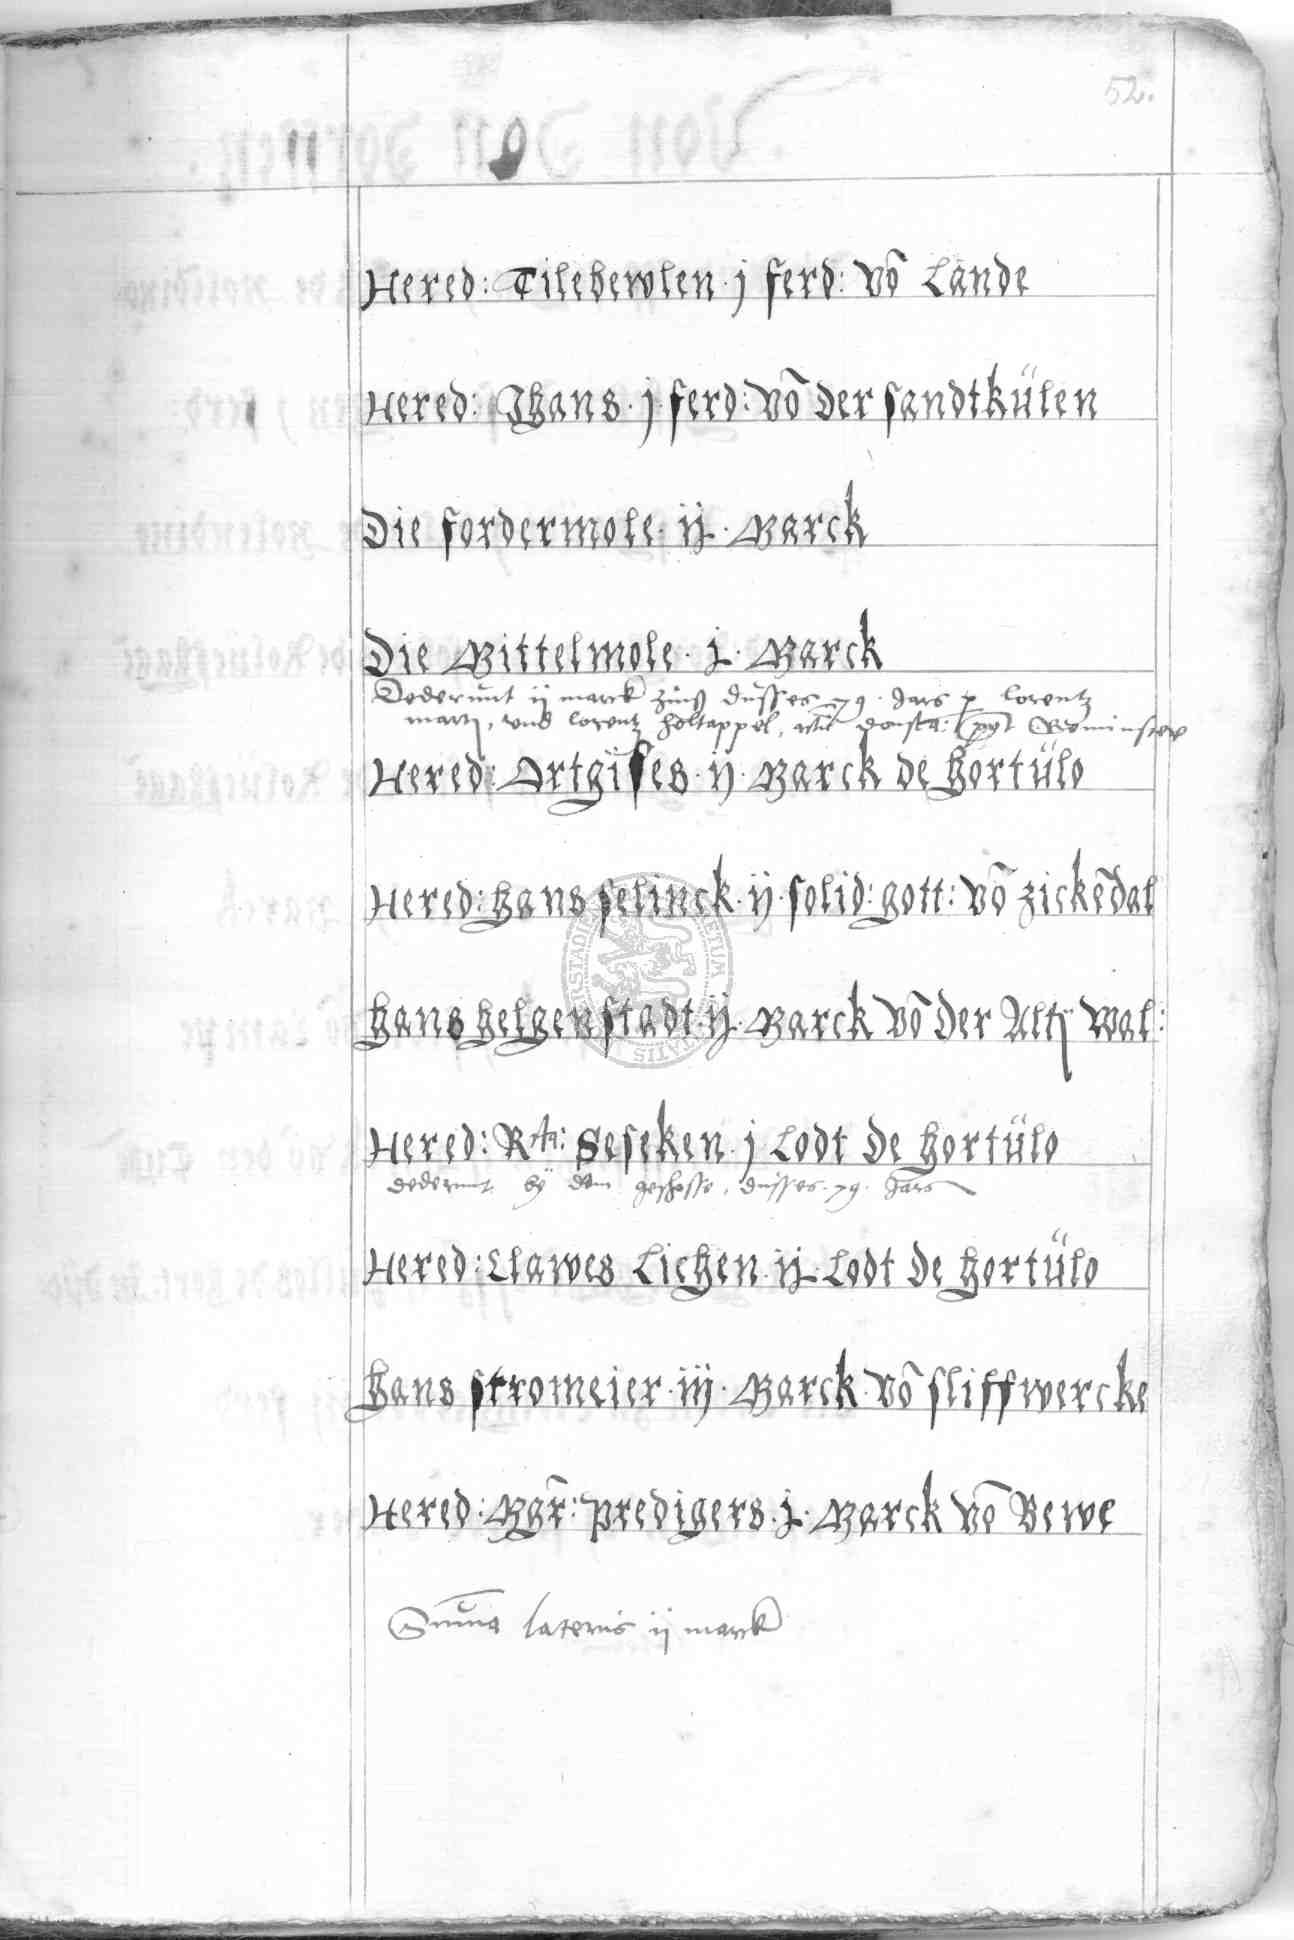 52.
Hered: Tilehewlen · j ferd: vō Lande
Hered: Jhans · j · ferd: vō der sandtkülen
Die fordermole · ij · Marck
Die Mittelmole · j · Marck
Dederunt ij marck zinß dusses 79 · Jars p lorentz
martj, vnd lorentz holtappel, donsta:
Hered: Ortgises · ij · Marck de hortülo
Hered: hans selinck · ij · solid: gott: vō zickēdal
hans helgenstadt · ij · Marck vō der Altē wal:
Hered: Seseken · j · Lodt de hortülo
dederunt by dem geschosse, dusses · 79 · Jars
Hered: Clawes Lichen · ij · Lodt de hortülo
hans stromeier · iij · Marck · vō sliffwercke
Hered: Mgr̄: predigers · j · Marck vō Bewe
Suma lateris ij marck